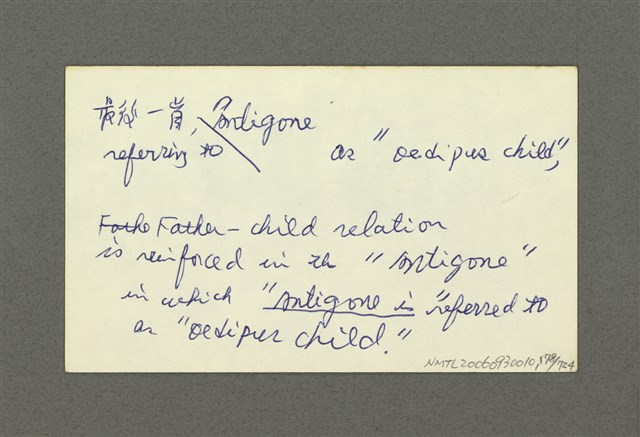 最後一首, Antigone
referring to as "oedipus child,"
Fathe Father - child relation
is reinforced in the "Antigone"
in which "Antigone is "referred to
as "oedipus child."
NMTL20060930010,178/724